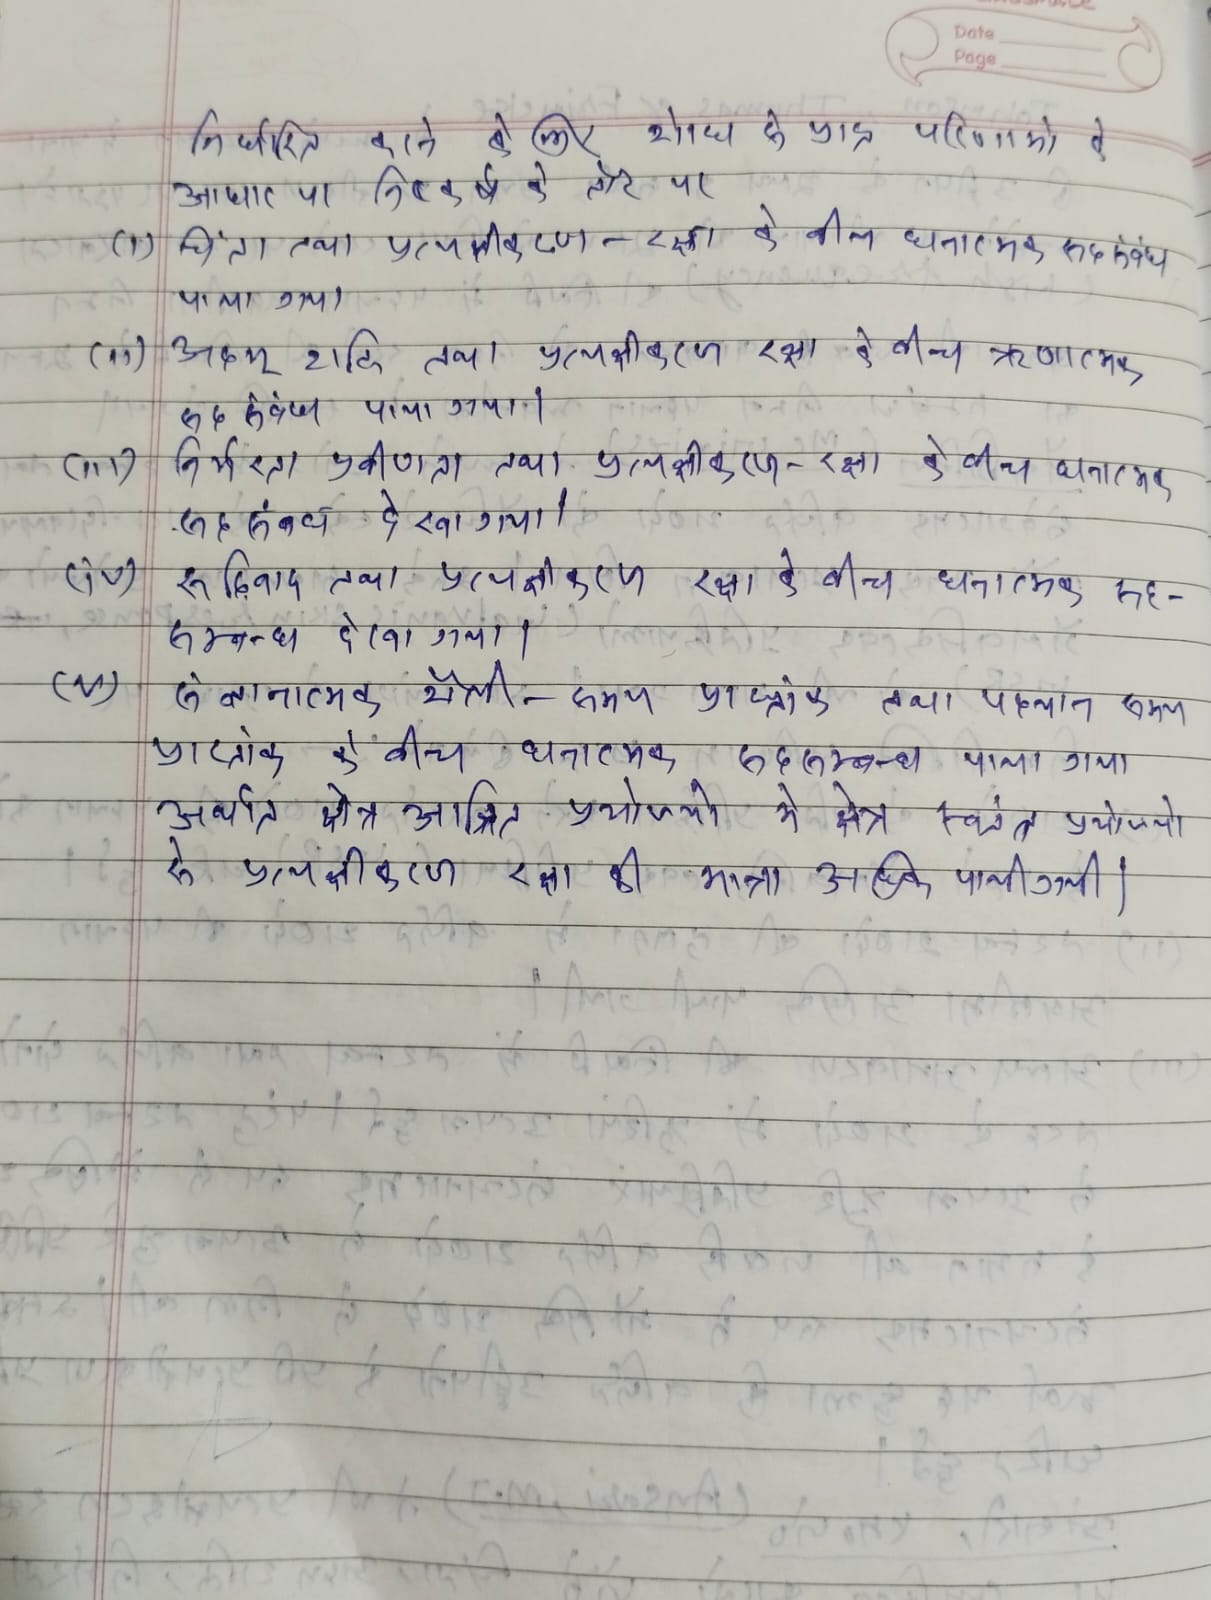 Date
Page
निर्धारित करने के लिए शोध से प्राप्त परिणामों के
आधार पर निष्कर्ष के तौर पर
(i) चिंता तथा प्रत्यक्षीकरण - रक्षा के बीच धनात्मक सहसंबंध
पाया गया
(ii) अहम् शक्ति तथा प्रत्यक्षीकरण रक्षा के बीच ऋणात्मक
सहसंबंध पाया गया।
(iii) निर्भरता प्रवीणता तथा प्रत्यक्षीकरण - रक्षा के बीच धनात्मक
सहसंबंध देखा गया।
(iv) रूढ़िवाद तथा प्रत्यक्षीकरण रक्षा के बीच धनात्मक सह-
सम्बन्ध देखा गया।
(v) संज्ञानात्मक शैली - समय प्राप्तांक तथा पहचान समय
प्राप्तांक के बीच धनात्मक सहसम्बन्ध पाया गया
अर्थात क्षेत्र आश्रित प्रयोज्यो मे क्षेत्र स्वतंत्र प्रयोज्यो
से प्रत्यक्षीकरण रक्षा की मात्रा अधिक पायी गयी।